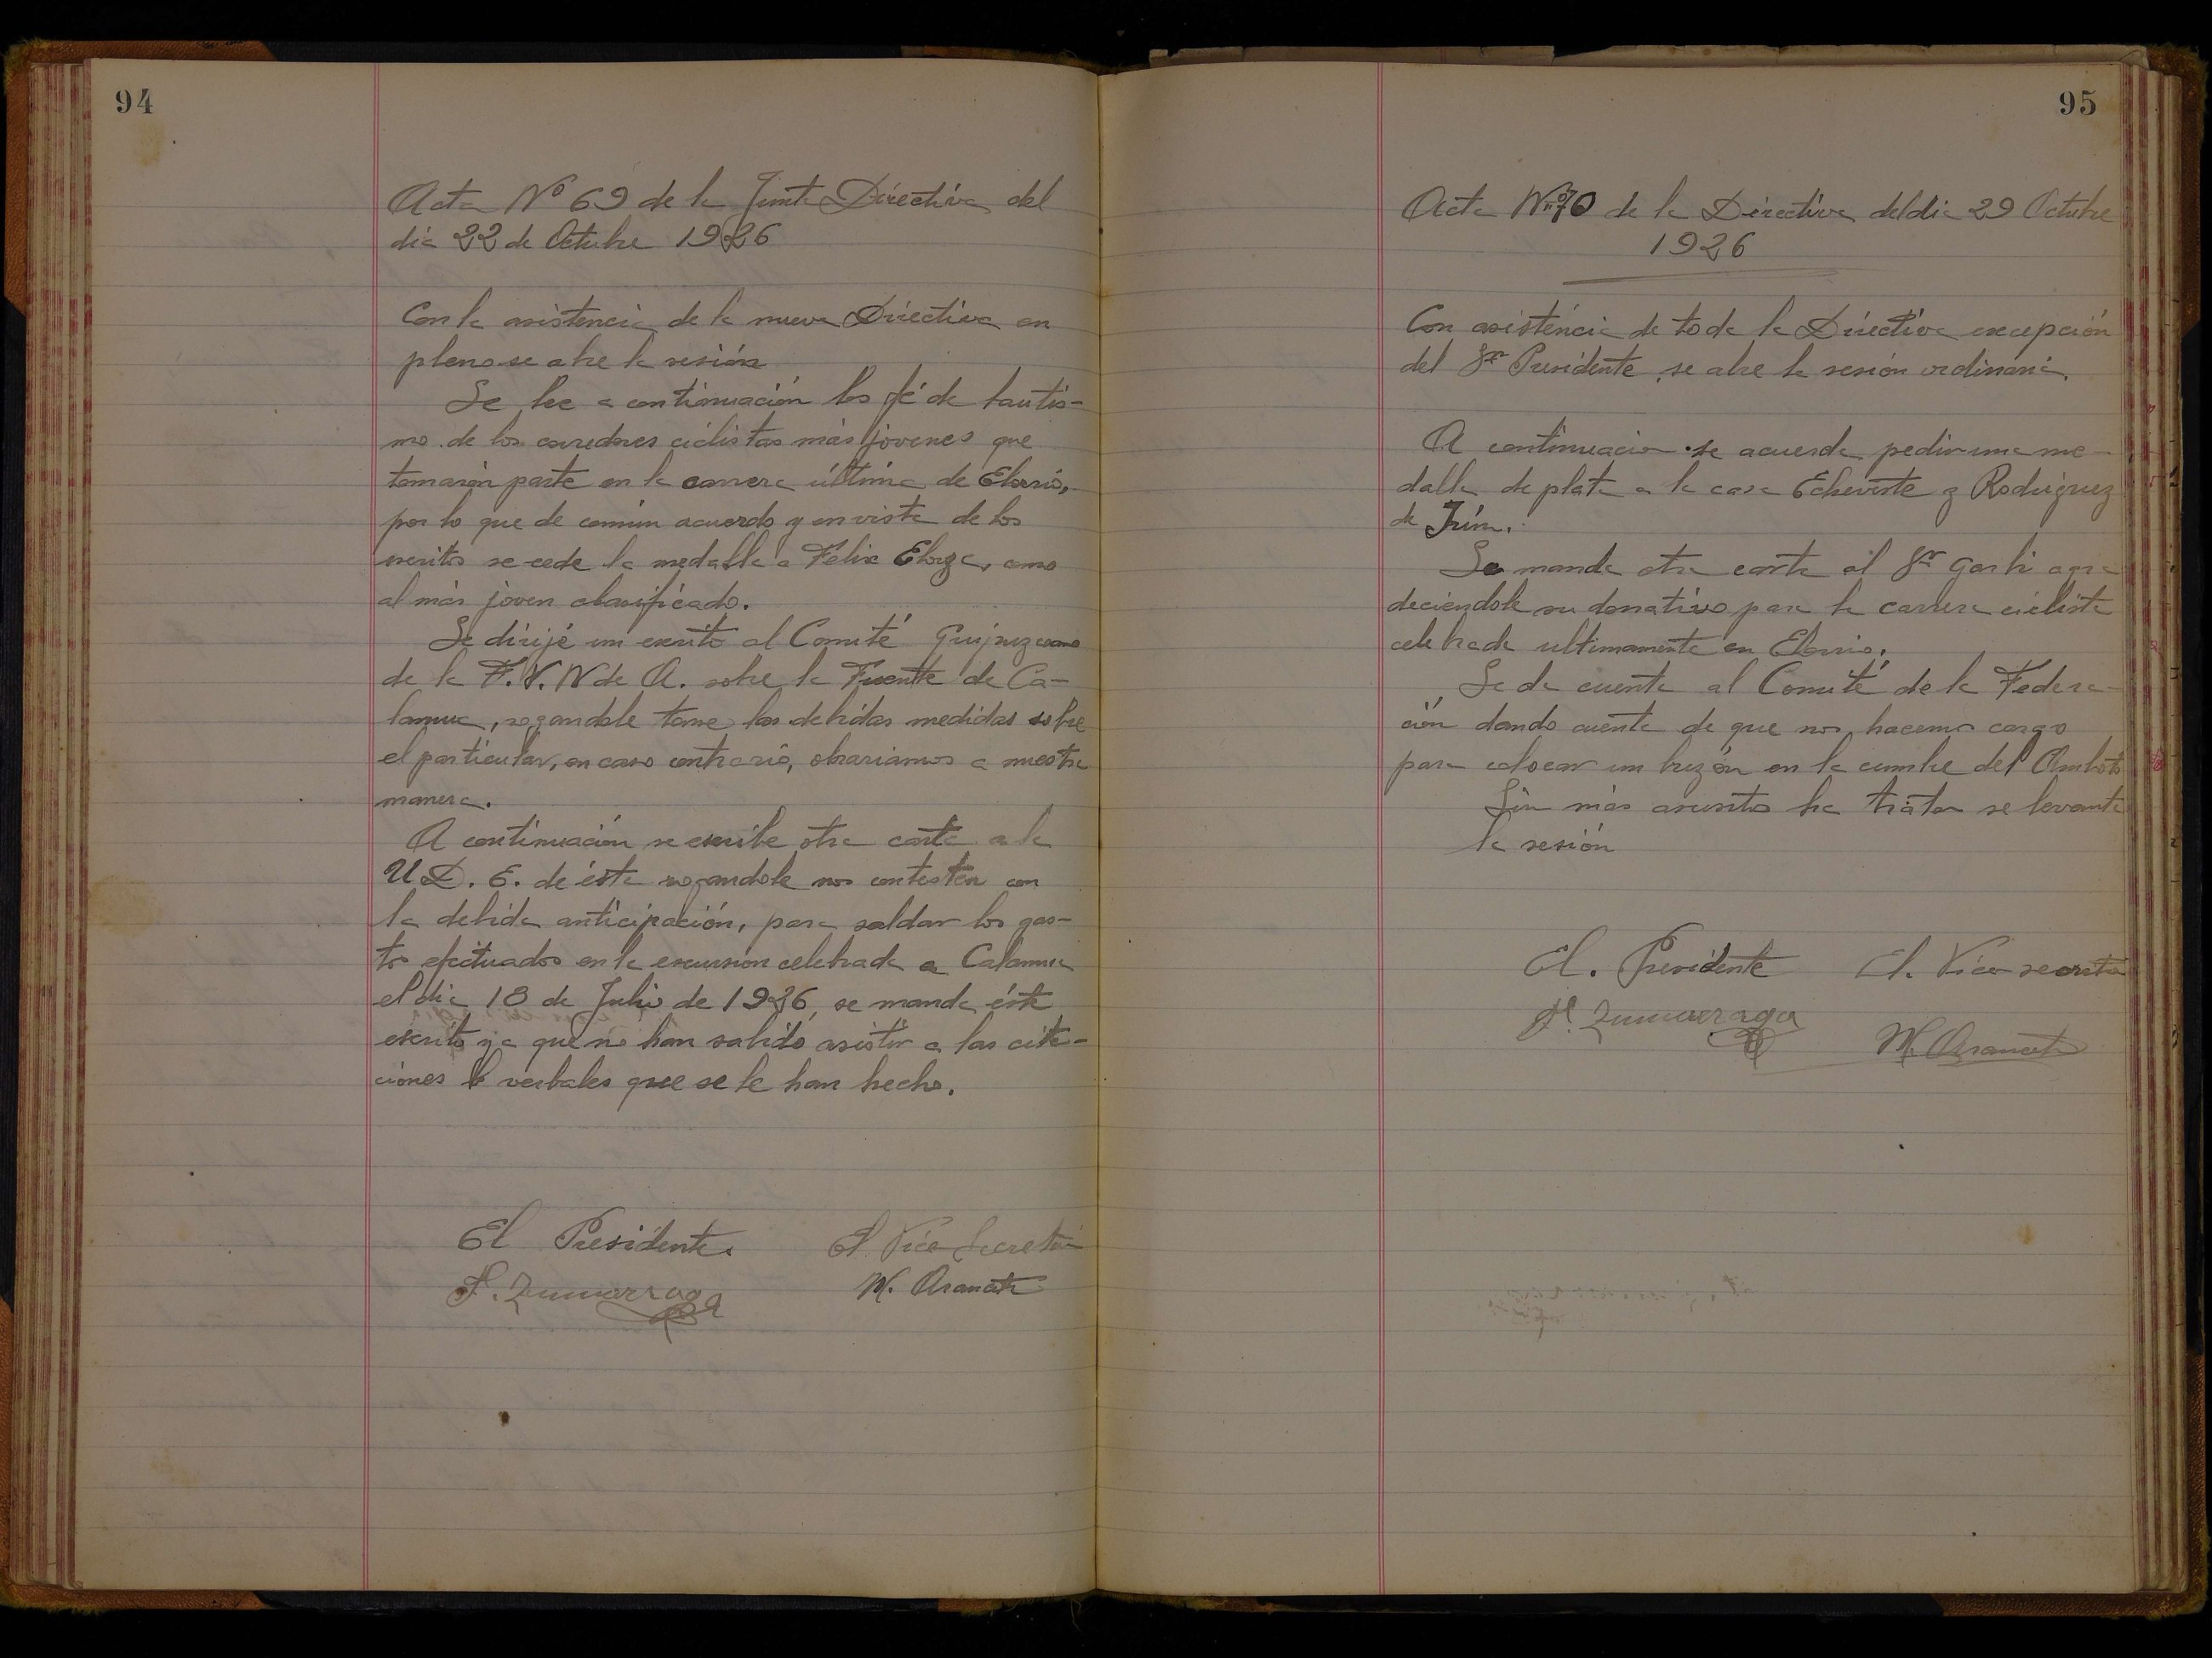 94
Acta Nº 69 de la Junta Directiva del
dia 22 de Octubre 1926
Con la asistencia de la nueva Directiva en
pleno se abre la sesión
Se lee a continuación los fé de bautis-
mo de los corredores ciclistas más jovenes que
tomarón parte en la carrera última de Elorrio,
por lo que de común acuerdo y en vista de los
escritos se cede la medalla a Félix Elorza, como
al más joven clasificado.
Se dirijé un escrito al Comité Guipuzcoano
de la F.V.N de A. sobre la Fuente de Ca-
lamua, rogandole tome las debidas medidas sobre
el particular, en caso contrario, obrariamos a nuestra
manera.
A continuación se escribe otra carta a la
U.D.E. de ésta rogandole nos contesten con
la debida anticipación, para saldar los gas-
tos efectuados en la escursion celebrada a Calamua
el dia 18 de Julio de 1926, se manda éste
escrito ya que no han sabido asistir a las cita-
ciones verbales que se le han hecho.
El Presidente El Vice Secretari
F. Zumarraga M. Aranceta
95
Acta Nº 70 de la Directiva del dia 29 Octubre
1926
Con asisténcia de toda la Directiva excepción
del Sr Presidente, se abre la sesión ordinaria.
A continuacion se acuerda pedir una me-
dalla de plata a la casa Echeverte y Rodriguez
de Irún.
Se manda otra carta al Sr Garbi agra-
deciendole su donativo para la carrera ciclista
celebrada ultimamente en Elorrio.
Se da cuenta al Comité de la Federa-
ción dando cuenta de que nos hacemos cargo
para colocar un buzón en la cumbre del Amboto
Sin más asuntos ha tratar se levanta
la sesión
El. Presidente El. Vice secreta
F. Zumarraga M. Aranceta